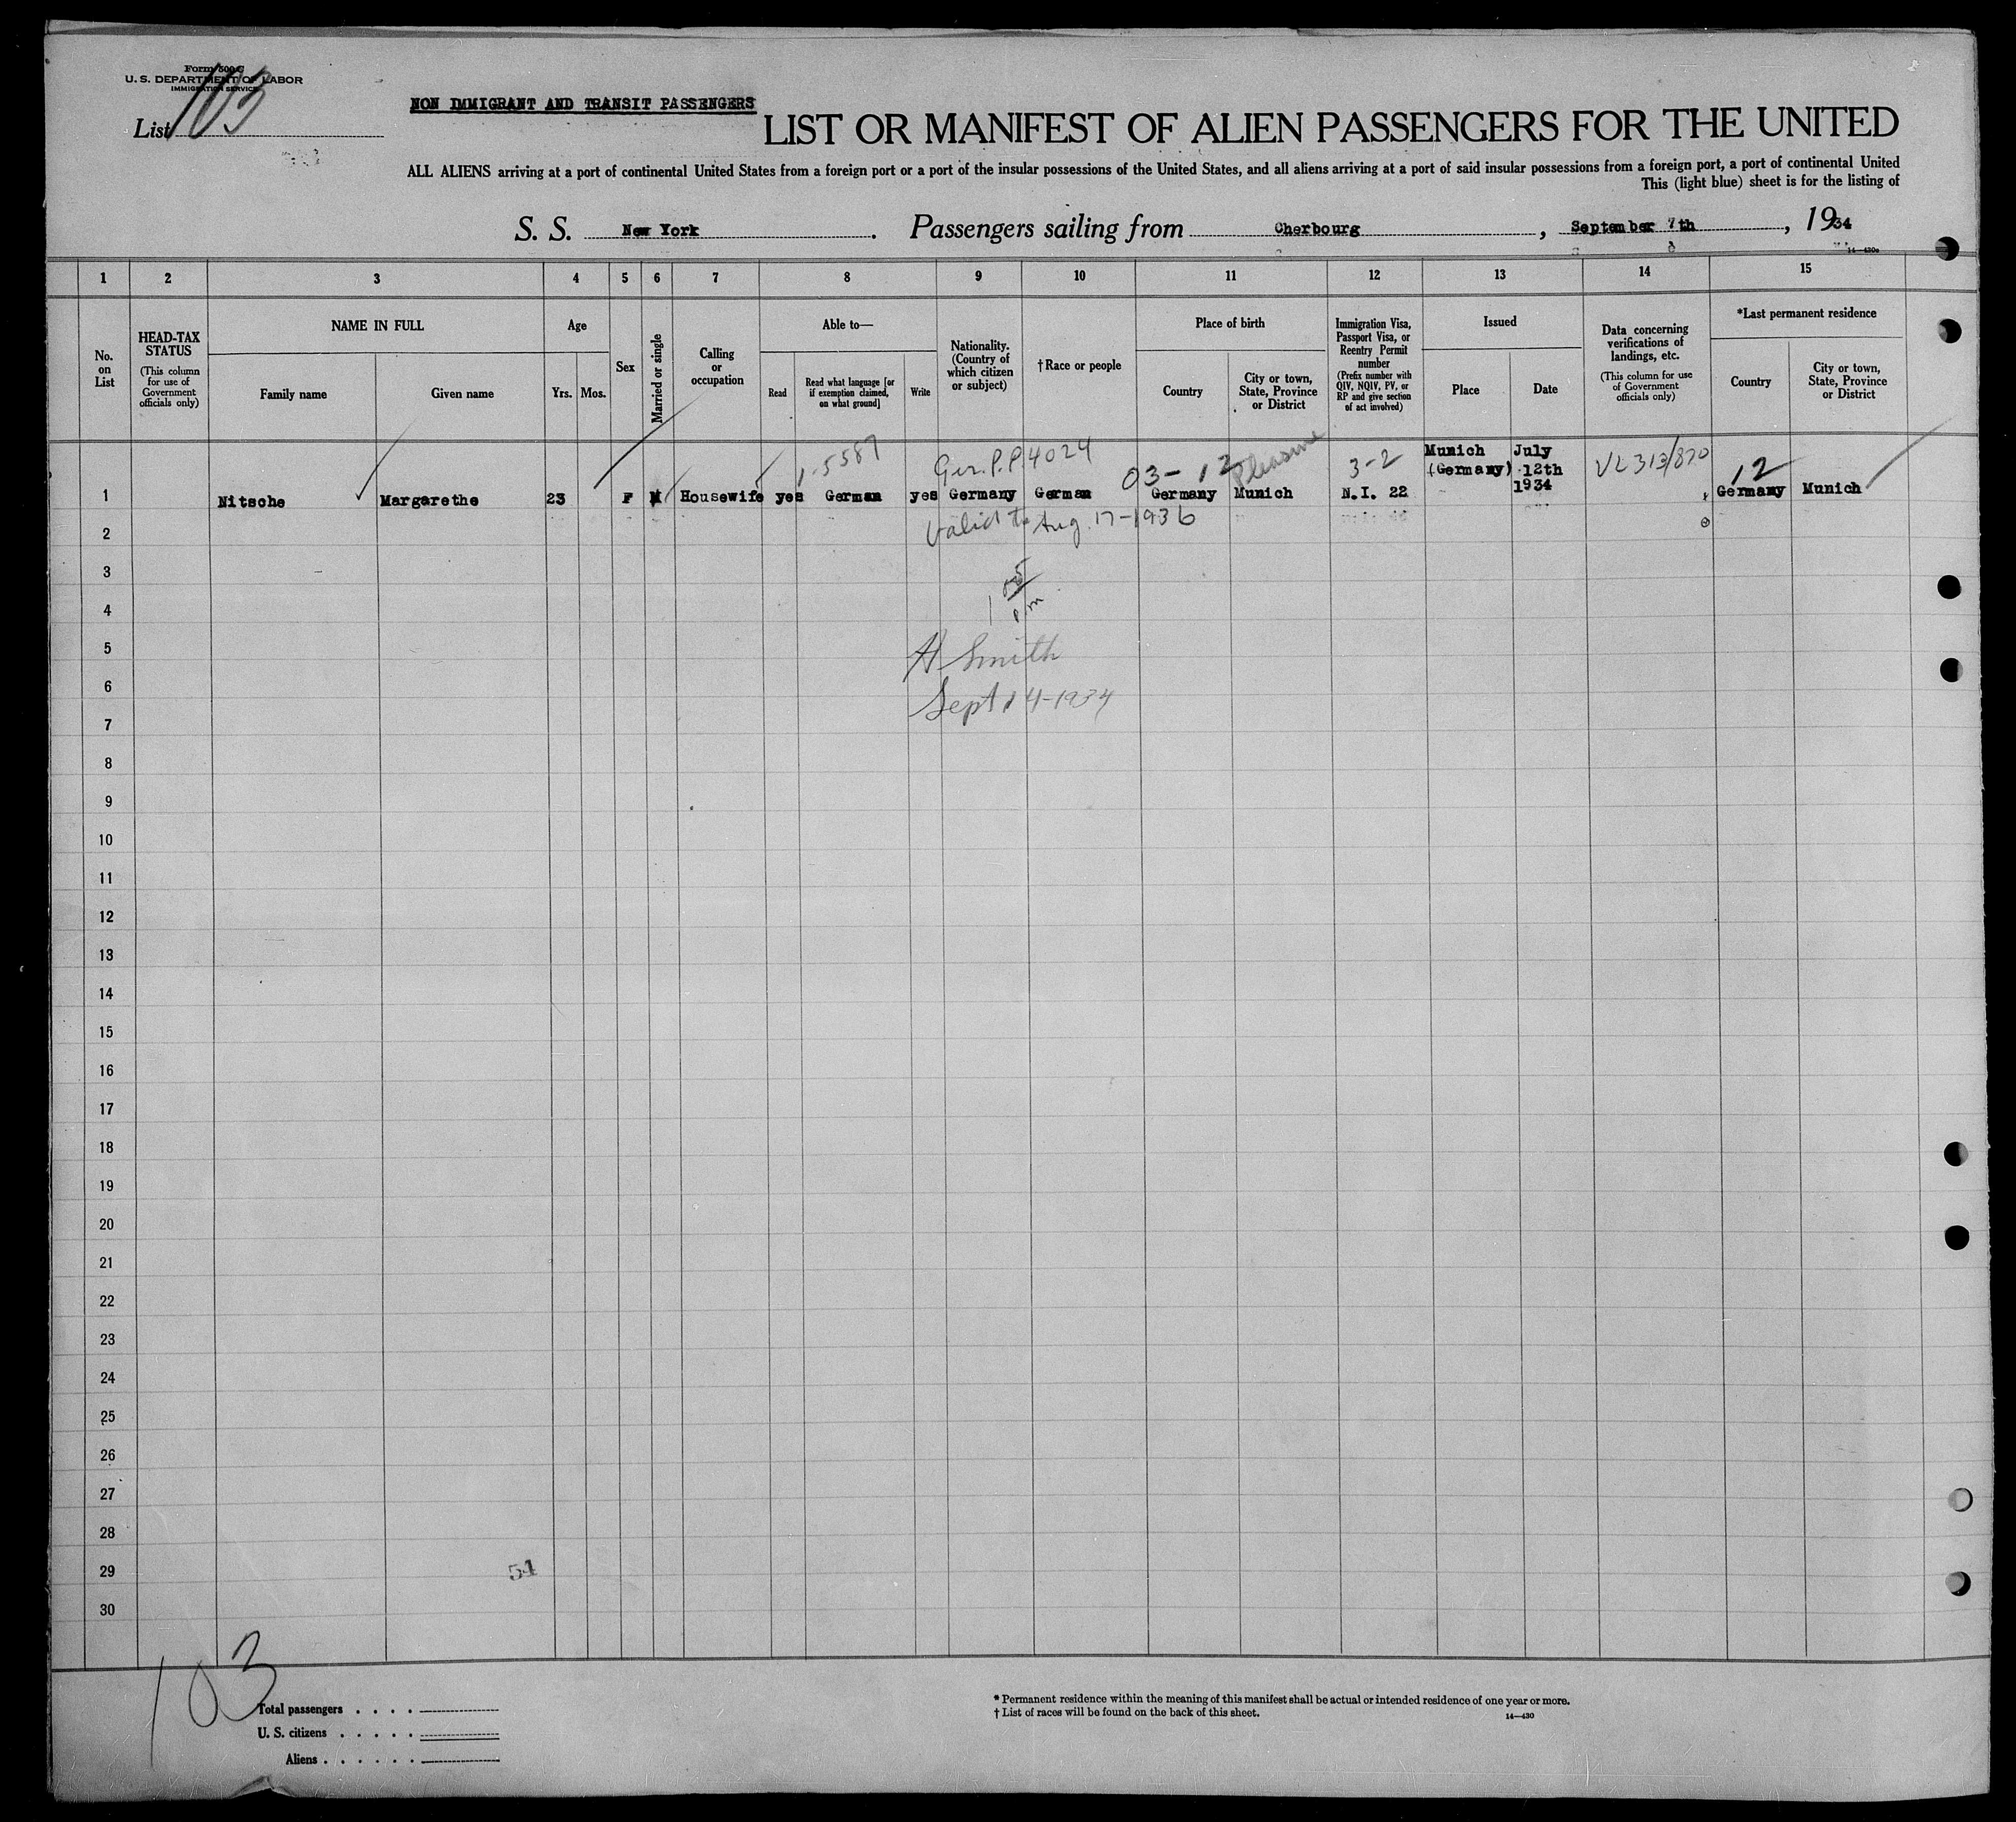 Form 500 C
U. S. DEPARTMENT OF LABOR
IMMIGRATION SERVICE
List 103
NON IMMIGRANT AND TRANSIT PASSENGERS
LIST OR MANIFEST OF ALIEN PASSENGERS FOR THE UNITED
ALL ALIENS arriving at a port of continental United States from a foreign port or a port of the insular possessions of the United States, and all aliens arriving at a port of said insular possessions from a foreign port, a port of continental United
This (light blue) sheet is for the listing of
S. S. New York. Passengers sailing from Cherbourg, September 7th, 1934
14—430
1 2 3 4 5 6 7 8 9 10 11 12 13 14 15
No. on List
HEAD-TAX STATUS
(This column for use of Government officials only)
NAME IN FULL
Family name
Given name
Age
Yrs.
Mos.
Sex
Married or single
Calling or occupation
Able to—
Read
Read what language [or if exemption claimed, on what ground]
Write
Nationality. (Country of which citizen or subject)
†Race or people
Place of birth
Country
City or town, State, Province or District
Immigration Visa, Passport Visa, or Reentry Permit number
(Prefix number with QIV, NQIV, PV, or RP and give section of act involved)
Issued
Place
Date
Data concerning verifications of landings, etc.
(This column for use of Government officials only)
*Last permanent residence
Country
City or town, State, Province or District
1-5587 Ger. P.P. 4024 03- 12 Pleasure 3-2 VL 313/820 12
1 Nitsche Margarethe 23 F M Housewife yes German yes Germany German Germany Munich N.I. 22 Munich (Germany) July 12th 1934 Germany Munich
Valid to Aug. 17-1936
2
3
1 05 p.m
4
5
H Smith
6
Sept 14-1934
7
8
9
10
11
12
13
14
15
16
17
18
19
20
21
22
23
24
25
26
27
28
29
51
30
103
Total passengers . . . .
U. S. citizens . . . . .
Aliens . . . . . .
* Permanent residence within the meaning of this manifest shall be actual or intended residence of one year or more.
† List of races will be found on the back of this sheet.
14—430